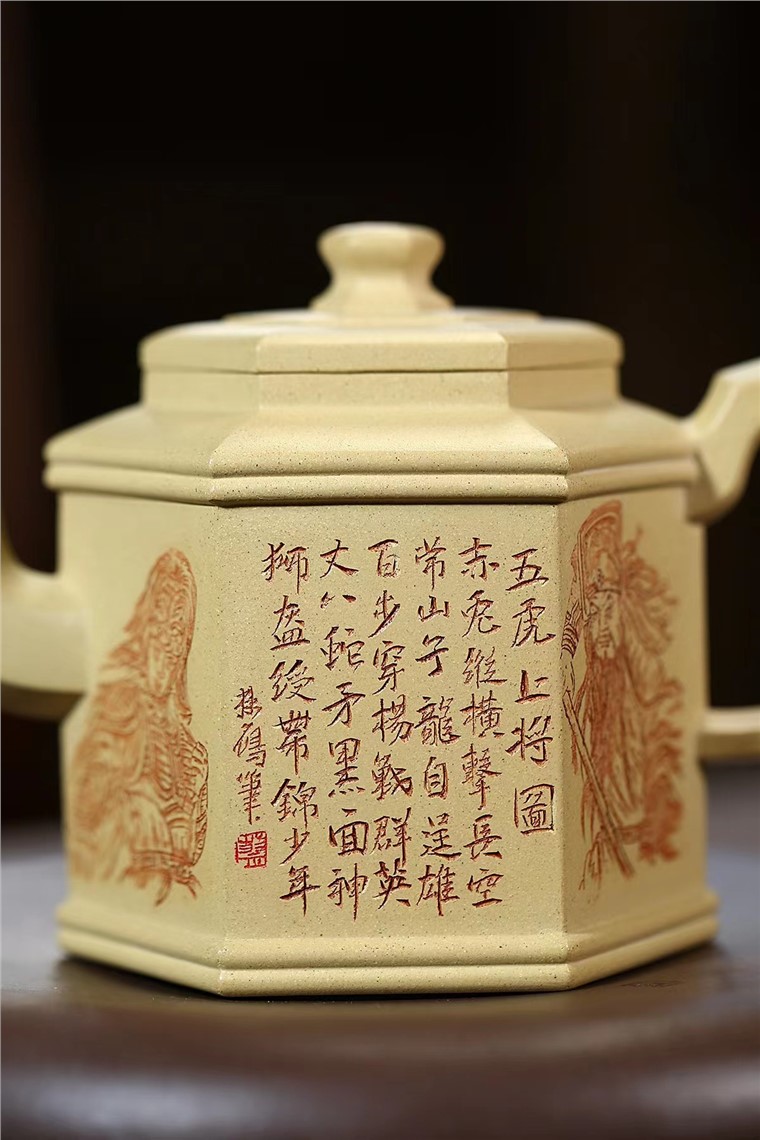 五虎上将圖
赤兎縱橫擊長空
常山子龍自逞雄
百步穿楊戰群英
丈八蛇矛黑面神
獅盔绶帶錦少年